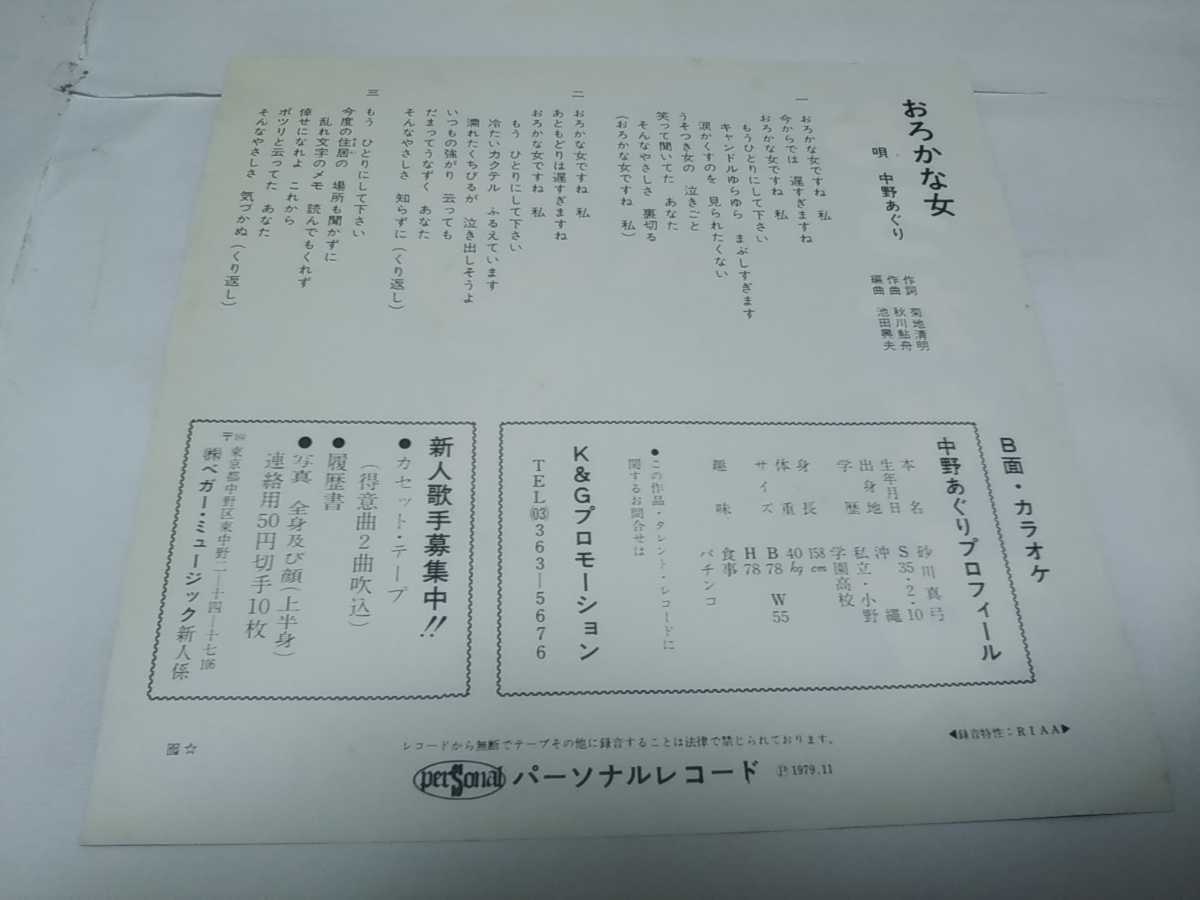 おろかな女
唄 中野あぐり
作詞 菊地清明
作曲 秋川鮎舟
編曲 池田興夫
一
おろかな女ですね 私
今からでは 遅すぎますね
おろかな女ですね 私
もうひとりにして下さい
キャンドルゆらゆら まぶしすぎます
涙かくすのを 見られたくない
うそつき女の 泣きごと
笑って聞いてた あなた
そんなやさしさ 裏切る
(おろかな女ですね 私)
二
おろかな女ですね 私
あともどりは遅すぎますね
おろかな女ですね 私
もう ひとりにして下さい
冷たいカクテル ふるえています
濡れたくちびるが 泣き出しそうよ
いつもの強がり 云っても
だまってうなずく あなた
そんなやさしさ 知らずに(くり返し)
三
もう ひとりにして下さい
今度の住居の 場所も聞かずに
乱れ文字のメモ 読んでもくれず
倖せになれよ これから
ポツリと云ってた あなた
そんなやさしさ 気づかぬ(くり返し)
B面・カラオケ
中野あぐりプロフィール
本名 砂川真弓
生年月日 S35・2・10
出身地 沖縄
学歴 私立・小野学園高校
身長 158cm
体重 40kg
サイズ B78 W55 H78
趣味 食事 パチンコ
●この作品・タレント・レコードに
関するお問合せは
K&Gプロモーション
TEL(03)363―5676
新人歌手募集中!!
●カセット・テープ
(得意曲2曲吹込)
●履歴書
●写真 全身及び顔(上半身)
連絡用50円切手10枚
〒164 東京都中野区東中野二―十四―十七 106
㈱ベガー・ミュージック新人係
◀録音特性:RIAA▶
レコードから無断でテープその他に録音することは法律で禁じられております。
perSonal パーソナルレコード Ⓟ1979.11
☆